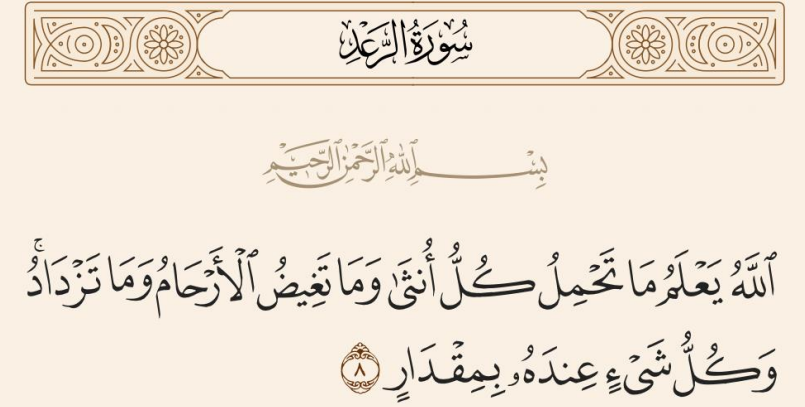 سُورَةُ الرَّعْدِ
بِسْمِ ٱللَّهِ ٱلرَّحْمَٰنِ ٱلرَّحِيمِ
ٱللَّهُ يَعْلَمُ مَا تَحْمِلُ كُلُّ أُنثَىٰ وَمَا تَغِيضُ ٱلْأَرْحَامُ وَمَا تَزْدَادُ ۚ
وَكُلُّ شَىْءٍ عِندَهُۥ بِمِقْدَارٍ ٨